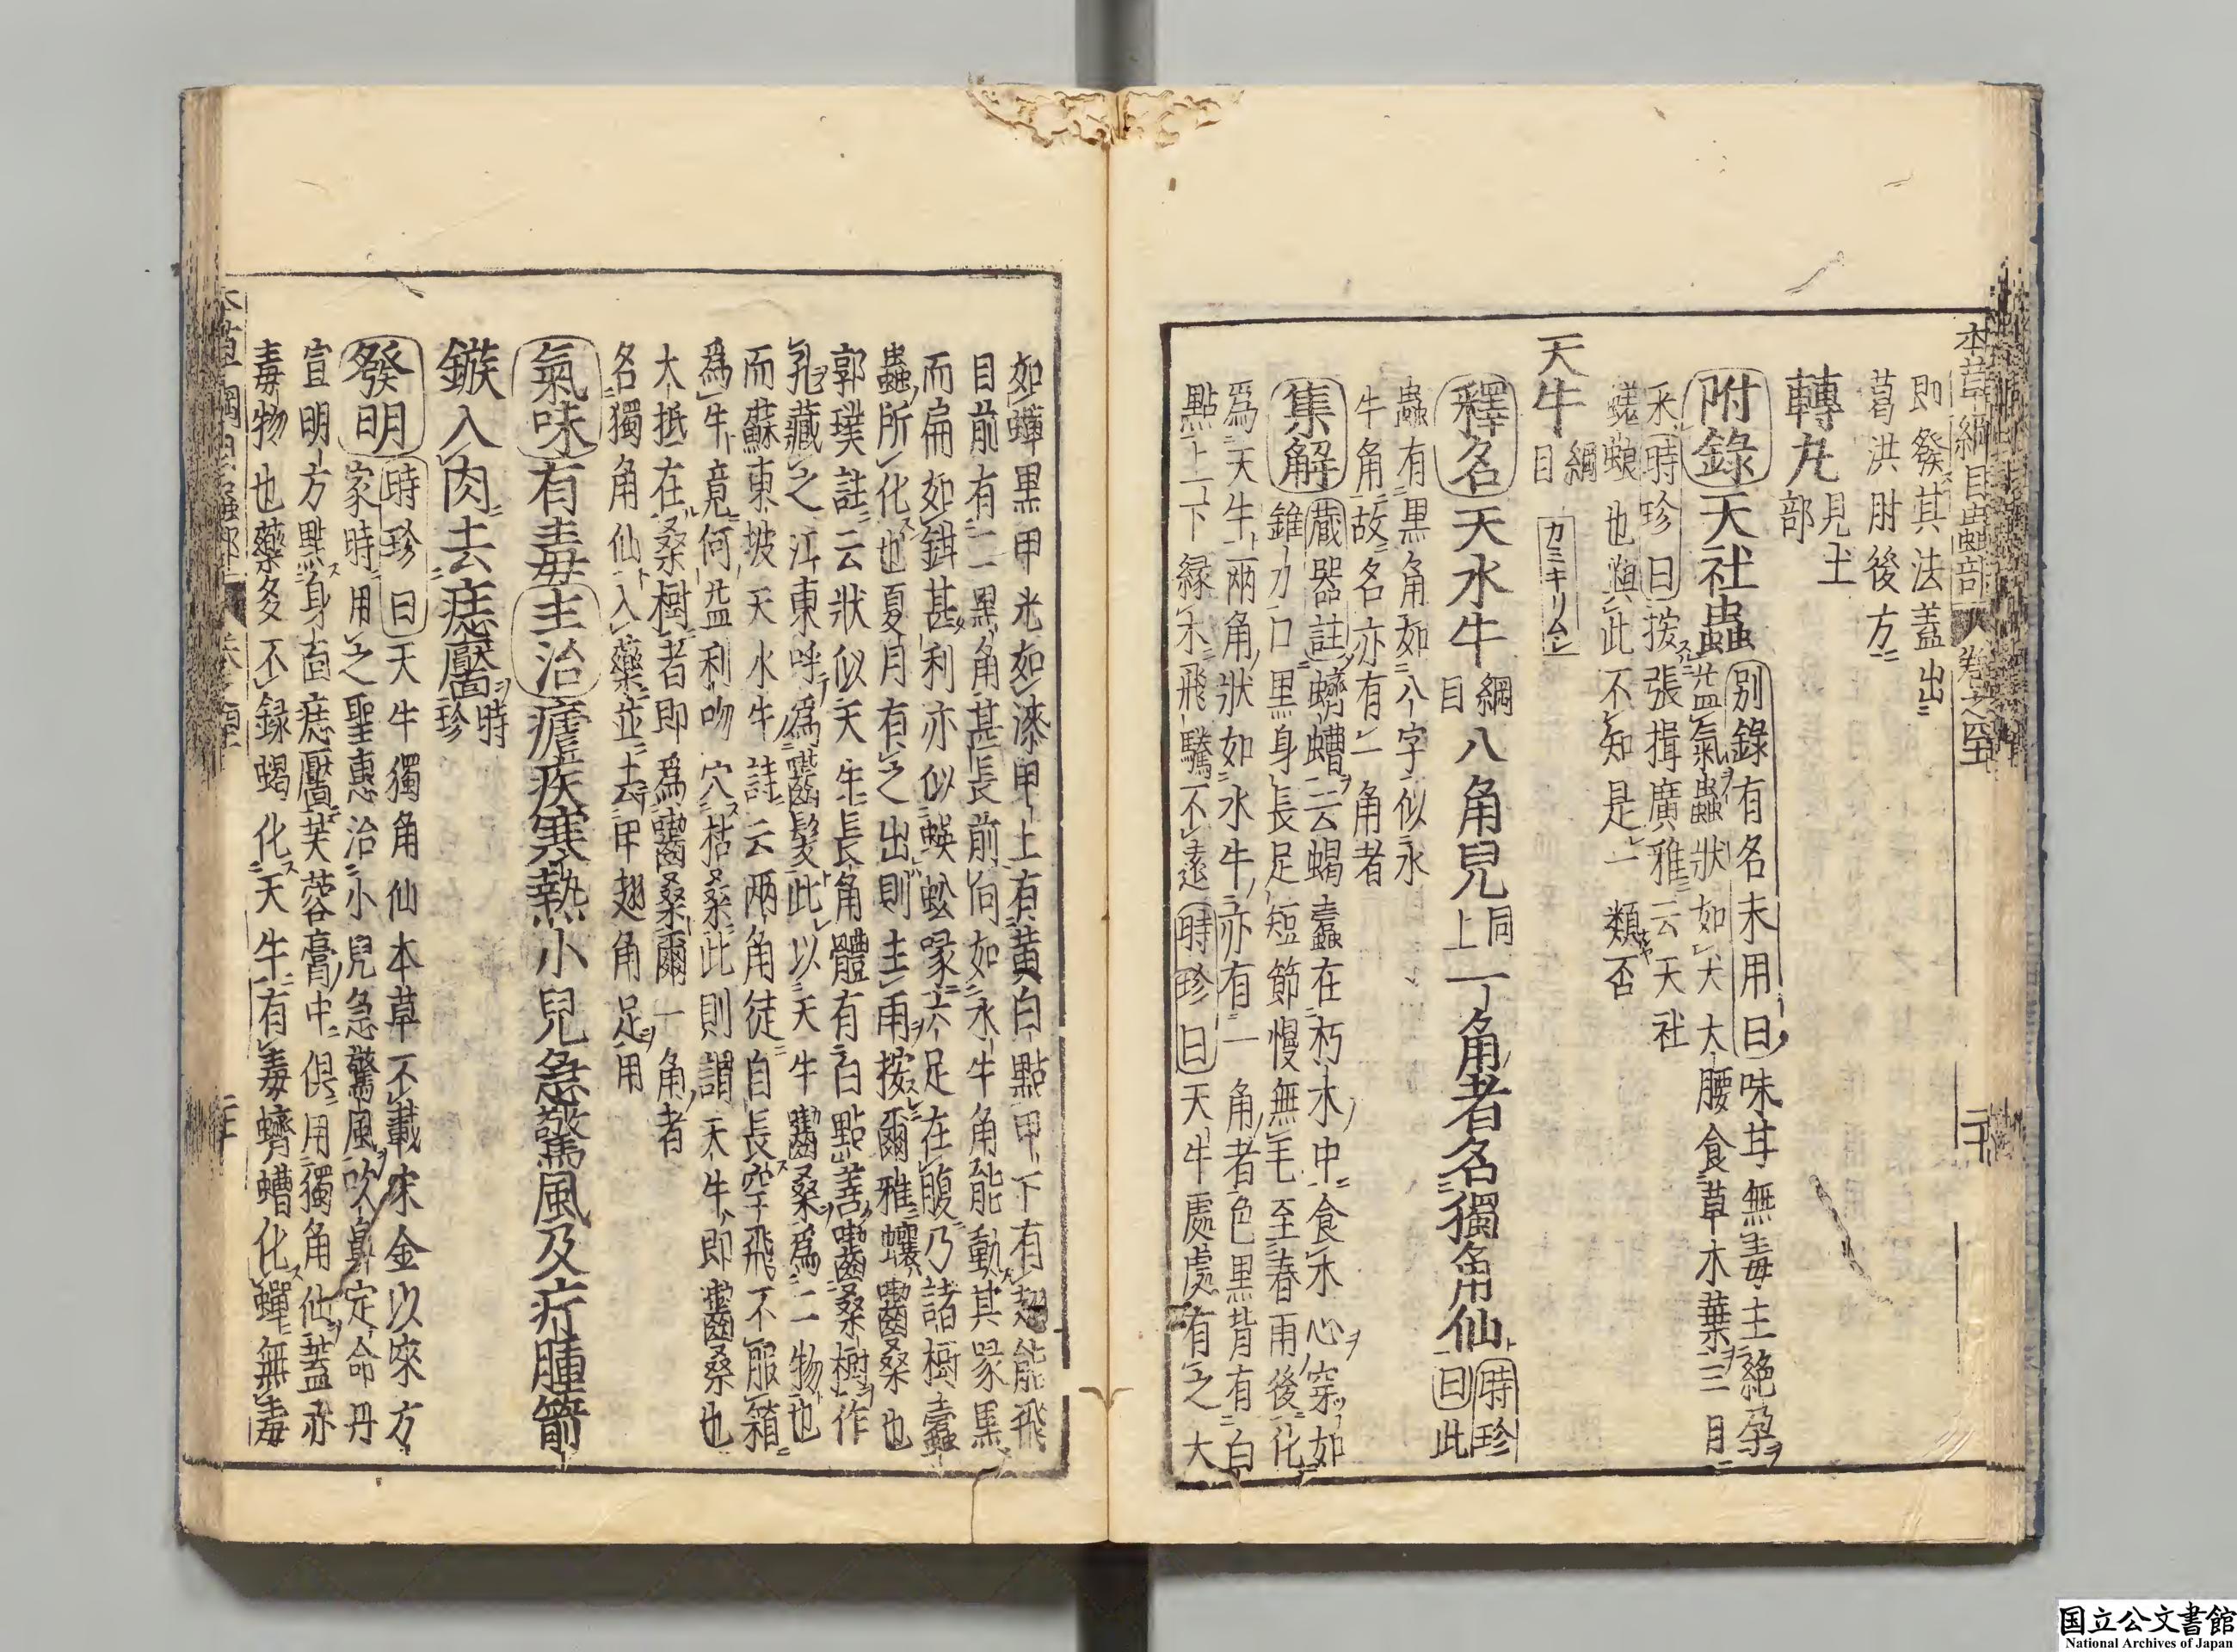 本草綱目蟲部 卷之四十一 二十
即發其法蓋出
葛洪肘後方
轉丸見土部
附錄天社蟲別錄有名未用曰味甘無毒主絕孕
益氣蟲狀如大大腰食草木葉三月
采時珍曰按張揖廣雅云天社
蜣蜋也與此不知是一類否
天牛綱目 カミキリムシ
釋名天水牛綱目八角兒同上一角者名獨角仙時珍曰此
蟲有黑角如八字似水
牛角故名亦有一角者
集解藏器註蠐螬云蝎蠹在朽木中食木心穿如
錐刀口黑身長足短節慢無毛至春雨後化
爲天牛兩角狀如水牛亦有一角者色黑背有白
點上下緣木飛騰不遠時珍曰天牛處處有之大
如蟬黑甲光如漆甲上有黃白點甲下有翅能飛
目前有二黑角甚長前向如水牛角能動其喙黑
而扁如鉗甚利亦似蜈蚣喙六足在腹乃諸樹蠹
蟲所化也夏月有之出則主雨按爾雅蠰齧桑也
郭璞註云狀似天牛長角體有白點善齧桑樹作
孔藏之江東呼爲齧髮此以天牛齧桑爲二物也
而蘇東坡天水牛詩云兩角徒自長空飛不服箱
爲牛竟何益利吻穴枯桑此則謂天牛即齧桑也
大抵在桑樹者即爲齧桑爾一角者
名獨角仙入藥並去甲翅角足用
氣味有毒主治瘧疾寒熱小兒急驚風及疔腫箭
鏃入肉去痣靨時珍
發明時珍曰天牛獨角仙本草不載宋金以來方
家時用之聖惠治小兒急驚風吹鼻定命丹
宣明方點身面痣靨芙蓉膏中俱用獨角仙蓋亦
毒物也藥多不錄蝎化天牛有毒蠐螬化蟬無毒
国立公文書館
National Archives of Japan